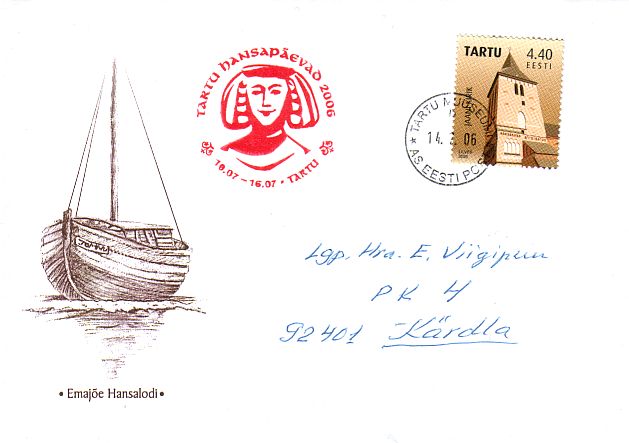 TARTU HANSAPÄEVAD 2006
10.07 – 16.07 • TARTU
TARTU 4.40
EESTI
JAANI
TARTU
14. 06
AS EESTI POST
Lgp. Hra. E. Viigipuu
PK 4
92401 Kärdla
• Emajõe Hansalodi •